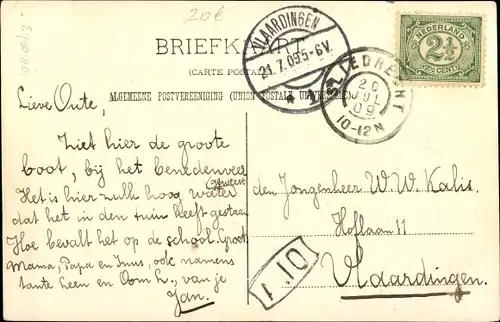 20€
BRIEFKAART
(CARTE POSTALE)
ALGEMEENE POSTVEREENIGING (UNION POSTALE UNIVERSELLE)
VLAARDINGEN
21.7.09 5-6V
1
SLIEDRECHT
20
JUL
09
10-12N
NEDERLAND
2½
CENT
Lieve Oute,
Ziet hier de groote
boot, bij het benedenveer
Het is hier zulk hoog water geweest
dat het in den tuin heeft gestaan
Hoe bevalt het op de school. Groet
Mama, Papa en Inus, ook namens
tante Leen en Oom L., van je
Jan.
den Jongenheer W. W. Kalis.
Hoflaan 11
Vlaardingen.
01.1